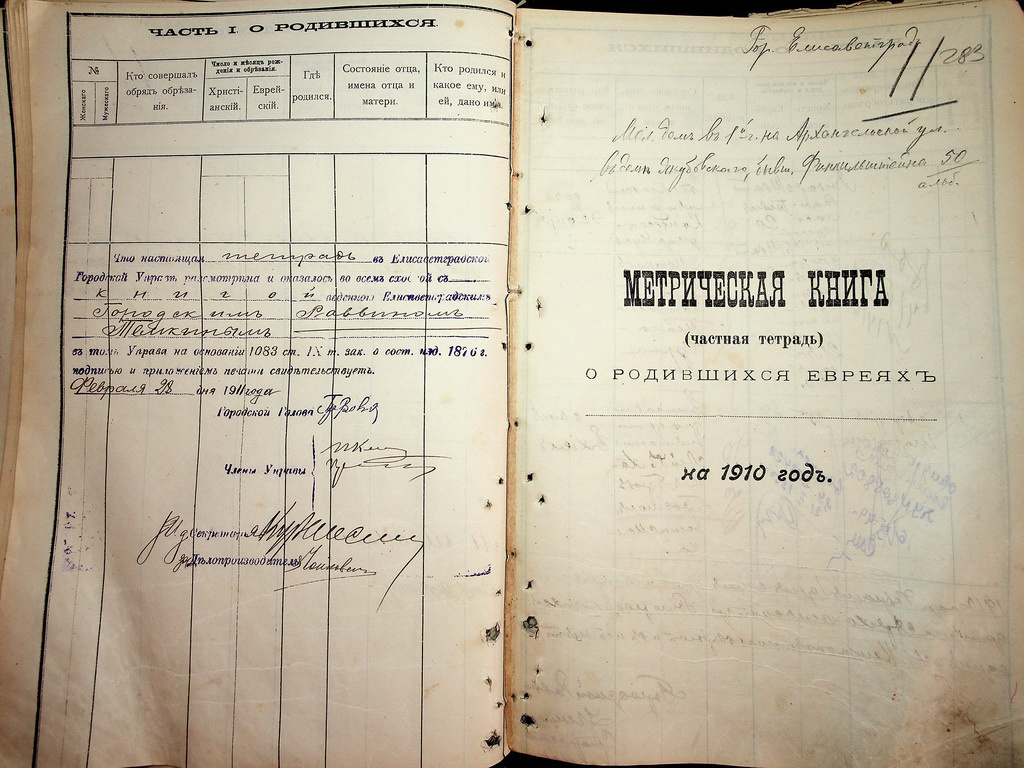 ЧАСТЬ I. О РОДИВШИХСЯ.
№
Женскаго
Мужескаго
Кто совершалъ обрядъ обрѣза-нія.
Число и мѣсяцъ рож-денія и обрѣзанія.
Христі-анскій.
Еврей-скій.
Гдѣ родился.
Состояніе отца, имена отца и матери.
Кто родился и какое ему, или ей, дано имя.
Что настоящая тетрадь въ Елисаветградской
Городской Управѣ разсмотрѣна и оказалось во всемъ сходной съ
книгой веденною Елисаветградскимъ
Городскимъ Раввиномъ
Темкинымъ
въ томъ Управа на основаніи 1083 ст. IX т. зак. о сост. изд. 1876 г.
подписью и приложеніемъ печати свидѣтельствуетъ.
Февраля 28 дня 1911 года
Городской Голова
Члены Управы
Секретарь
Дѣлопроизводитель
Гор. Елисаветградъ
11/283
Мол. домъ въ 1й ч. на Архангельской ул.
въ домѣ Якубовскаго, бывш. Финкельштейна 50
МЕТРИЧЕСКАЯ КНИГА
(частная тетрадь)
О РОДИВШИХСЯ ЕВРЕЯХЪ
на 1910 годъ.